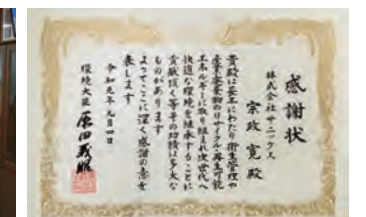 感謝状
株式会社サニックス
宗政寛殿
貴殿は長年にわたり衛生管理や
産業廃棄物のリサイクル・再生可能
エネルギーに取り組まれ次世代へ
快適な環境を継承することに
貢献頂く等その功績は多大な
ものがあります
よってここに深く感謝の意を
表します
令和元年九月四日
環境大臣 原田義昭